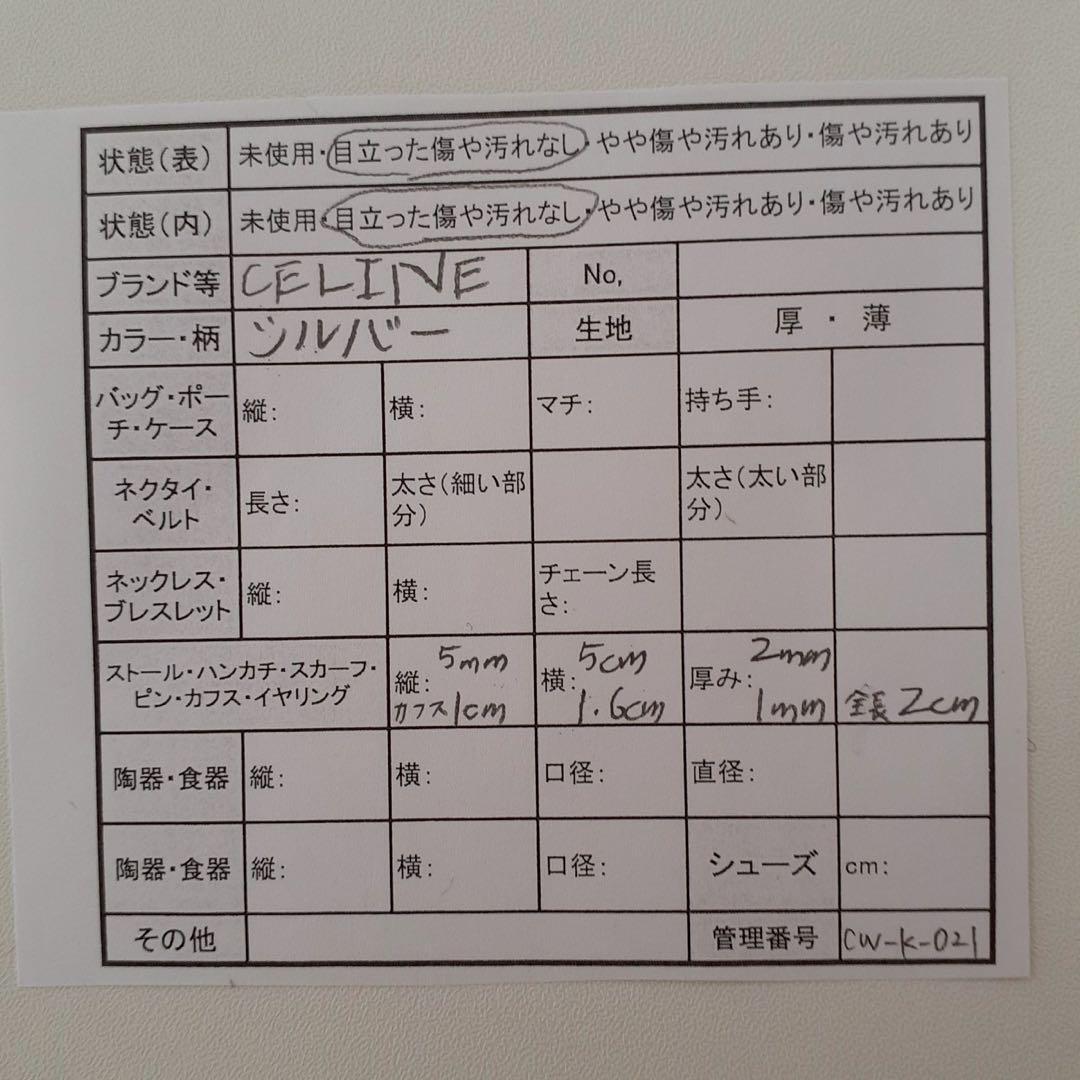 状態(表) 未使用・目立った傷や汚れなし・やや傷や汚れあり・傷や汚れあり
状態(内) 未使用・目立った傷や汚れなし・やや傷や汚れあり・傷や汚れあり
ブランド等 CELINE No,
カラー・柄 シルバー 生地 厚・薄
バッグ・ポー
チ・ケース 縦: 横: マチ: 持ち手:
ネクタイ・
ベルト 長さ: 太さ(細い部
分) 太さ(太い部
分)
ネックレス・
ブレスレット 縦: 横: チェーン長
さ:
ストール・ハンカチ・スカーフ・
ピン・カフス・イヤリング 縦: 5mm 横: 5cm 厚み: 2mm
カフス1cm 1.6cm 1mm 全長2cm
陶器・食器 縦: 横: 口径: 直径:
陶器・食器 縦: 横: 口径: シューズ cm:
その他 管理番号 CW-K-021